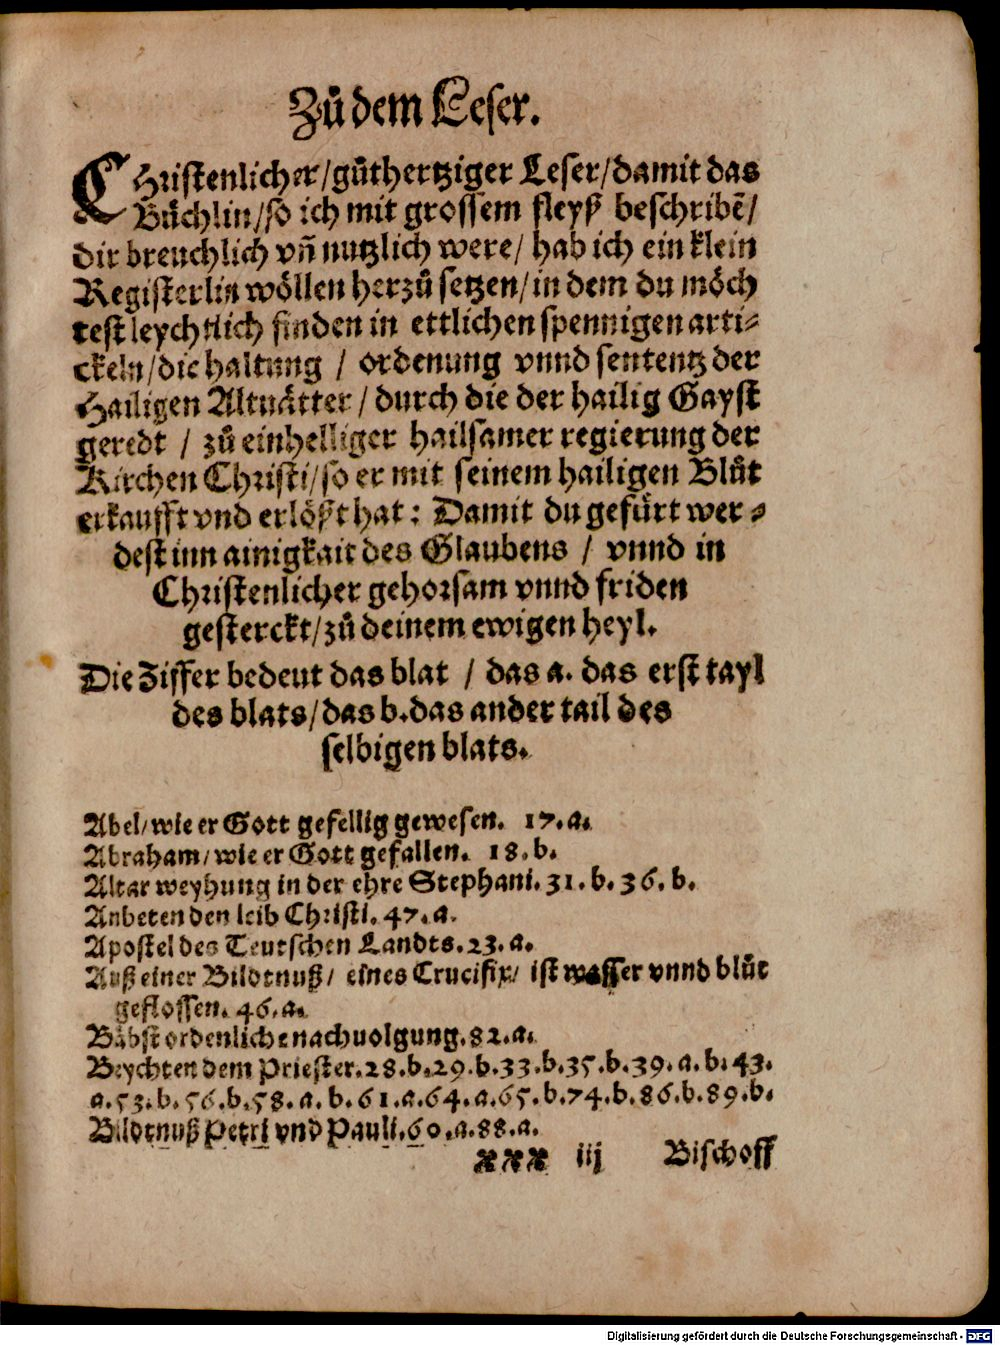 Zů dem Leser.
CHristenlicher/gůthertziger Leser/damit das
Büchlin/so ich mit grossem fleyß beschribẽ/
dir breuchlich vñ nutzlich were/ hab ich ein klein
Registerlin wöllen herzů setzen/in dem du möch
test leychtlich finden in ettlichen spennigen arti-
ckeln/die haltung / ordenung vnnd sententz der
Hailigen Altuätter / durch die der hailig Gayst
geredt / zů einhelliger hailsamer regierung der
Kirchen Christi/so er mit seinem hailigen Blůt
erkaufft vnd erlößt hat: Damit du gefürt wer-
dest inn ainigkait des Glaubens / vnnd in
Christenlicher gehorsam vnnd friden
gesterckt/zů deinem ewigen heyl.
Die Ziffer bedeut das blat / das a. das erst tayl
des blats/das b.das ander tail des
selbigen blats.
Abel/wie er Gott gefellig gewesen. 17.a.
Abraham/wie er Gott gefallen. 18.b.
Altar weyhung in der ehre Stephani.31.b.36.b.
Anbeten den leib Christi.47.a.
Apostel des Teutschen Landts.23.a.
Auß einer Bildtnuß/ eines Crucifix/ ist wasser vnnd blůt
geflossen.46.a.
Bäbst ordenliche nachuolgung.82.a.
Beychten dem Priester.28.b.29.b.33.b.35.b.39.a.b.43.
a.53.b.56.b.58.a.b.61.a.64.a.65.b.74.b.86.b.89.b.
Bildtnuß Petri vnd Pauli.60.a.88.a.
※※※ iij Bischoff
Digitalisierung gefördert durch die Deutsche Forschungsgemeinschaft - DFG